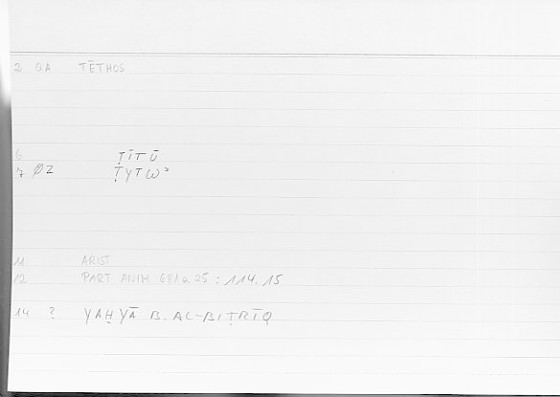 2 GA TĒTHOS
6 ṬĪTŪ
7 ØZ ṬYTW³
11 ARIST
12 PART ANIM 681a 25 : 114.15
14 ? YAḤYĀ B. AL-BIṬRĪQ